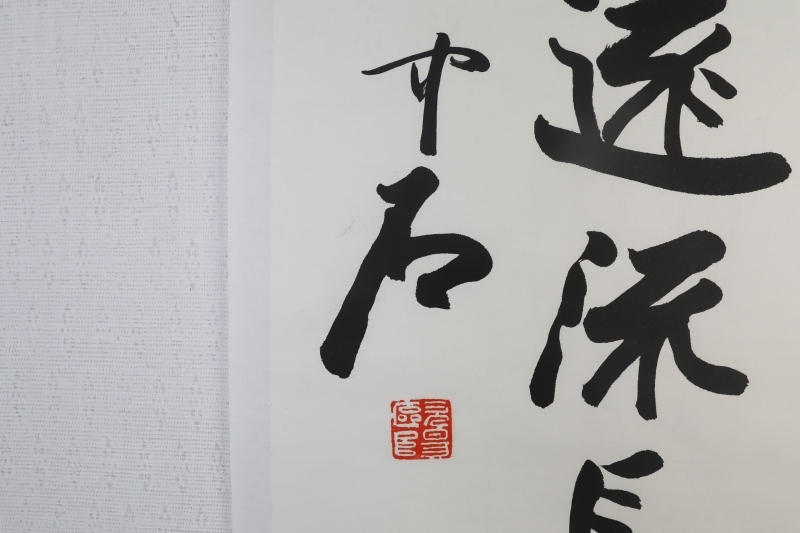 遠流長
中石